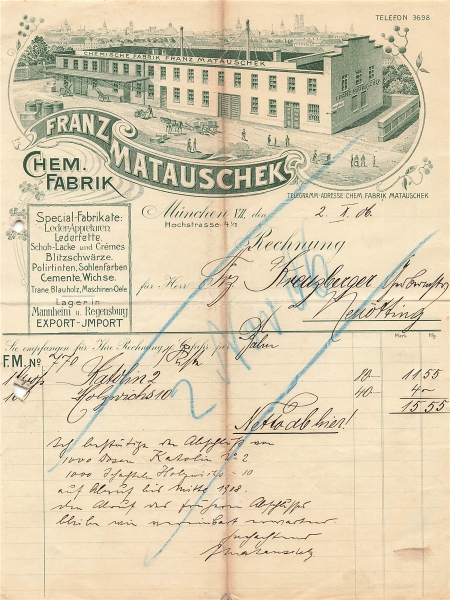 TELEFON 3698
CHEMISCHE FABRIK FRANZ MATAUSCHEK
FRANZ
MATAUSCHEK
CHEM.
FABRIK
TELEGRAMM-ADRESSE: CHEM. FABRIK MATAUSCHEK
München VII, den 2. X. 06.
Hochstrasse 4½
Special-Fabrikate:
Leder-Appreturen
Lederfette,
Schuh-Lacke und Crèmes
Blitzschwärze.
Poliertinten, Sohlenfarben
Cemente, Wichse.
Trane Blauholz, Maschinen-Oele
Lager in
Mannheim u. Regensburg
EXPORT-JMPORT
Rechnung
für Herrn Frz Kreuzberger
Neuötting
Sie empfangen für Ihre Rechnung u. Gefahr per Bahn
Mark Pfg
F.M. No 770
Katolin 2 10- 11 55
Holzwichs 10 40- 4
15 55
Netto ab hier!
2. Nov. 06
Ich bestätige den Abschluss von
1000 Dosen Katolin No 2
1000 Schachteln Holzwichs - 10
auf Abruf bis Mitte 1908.
den Abruf des früheren Abschlusses